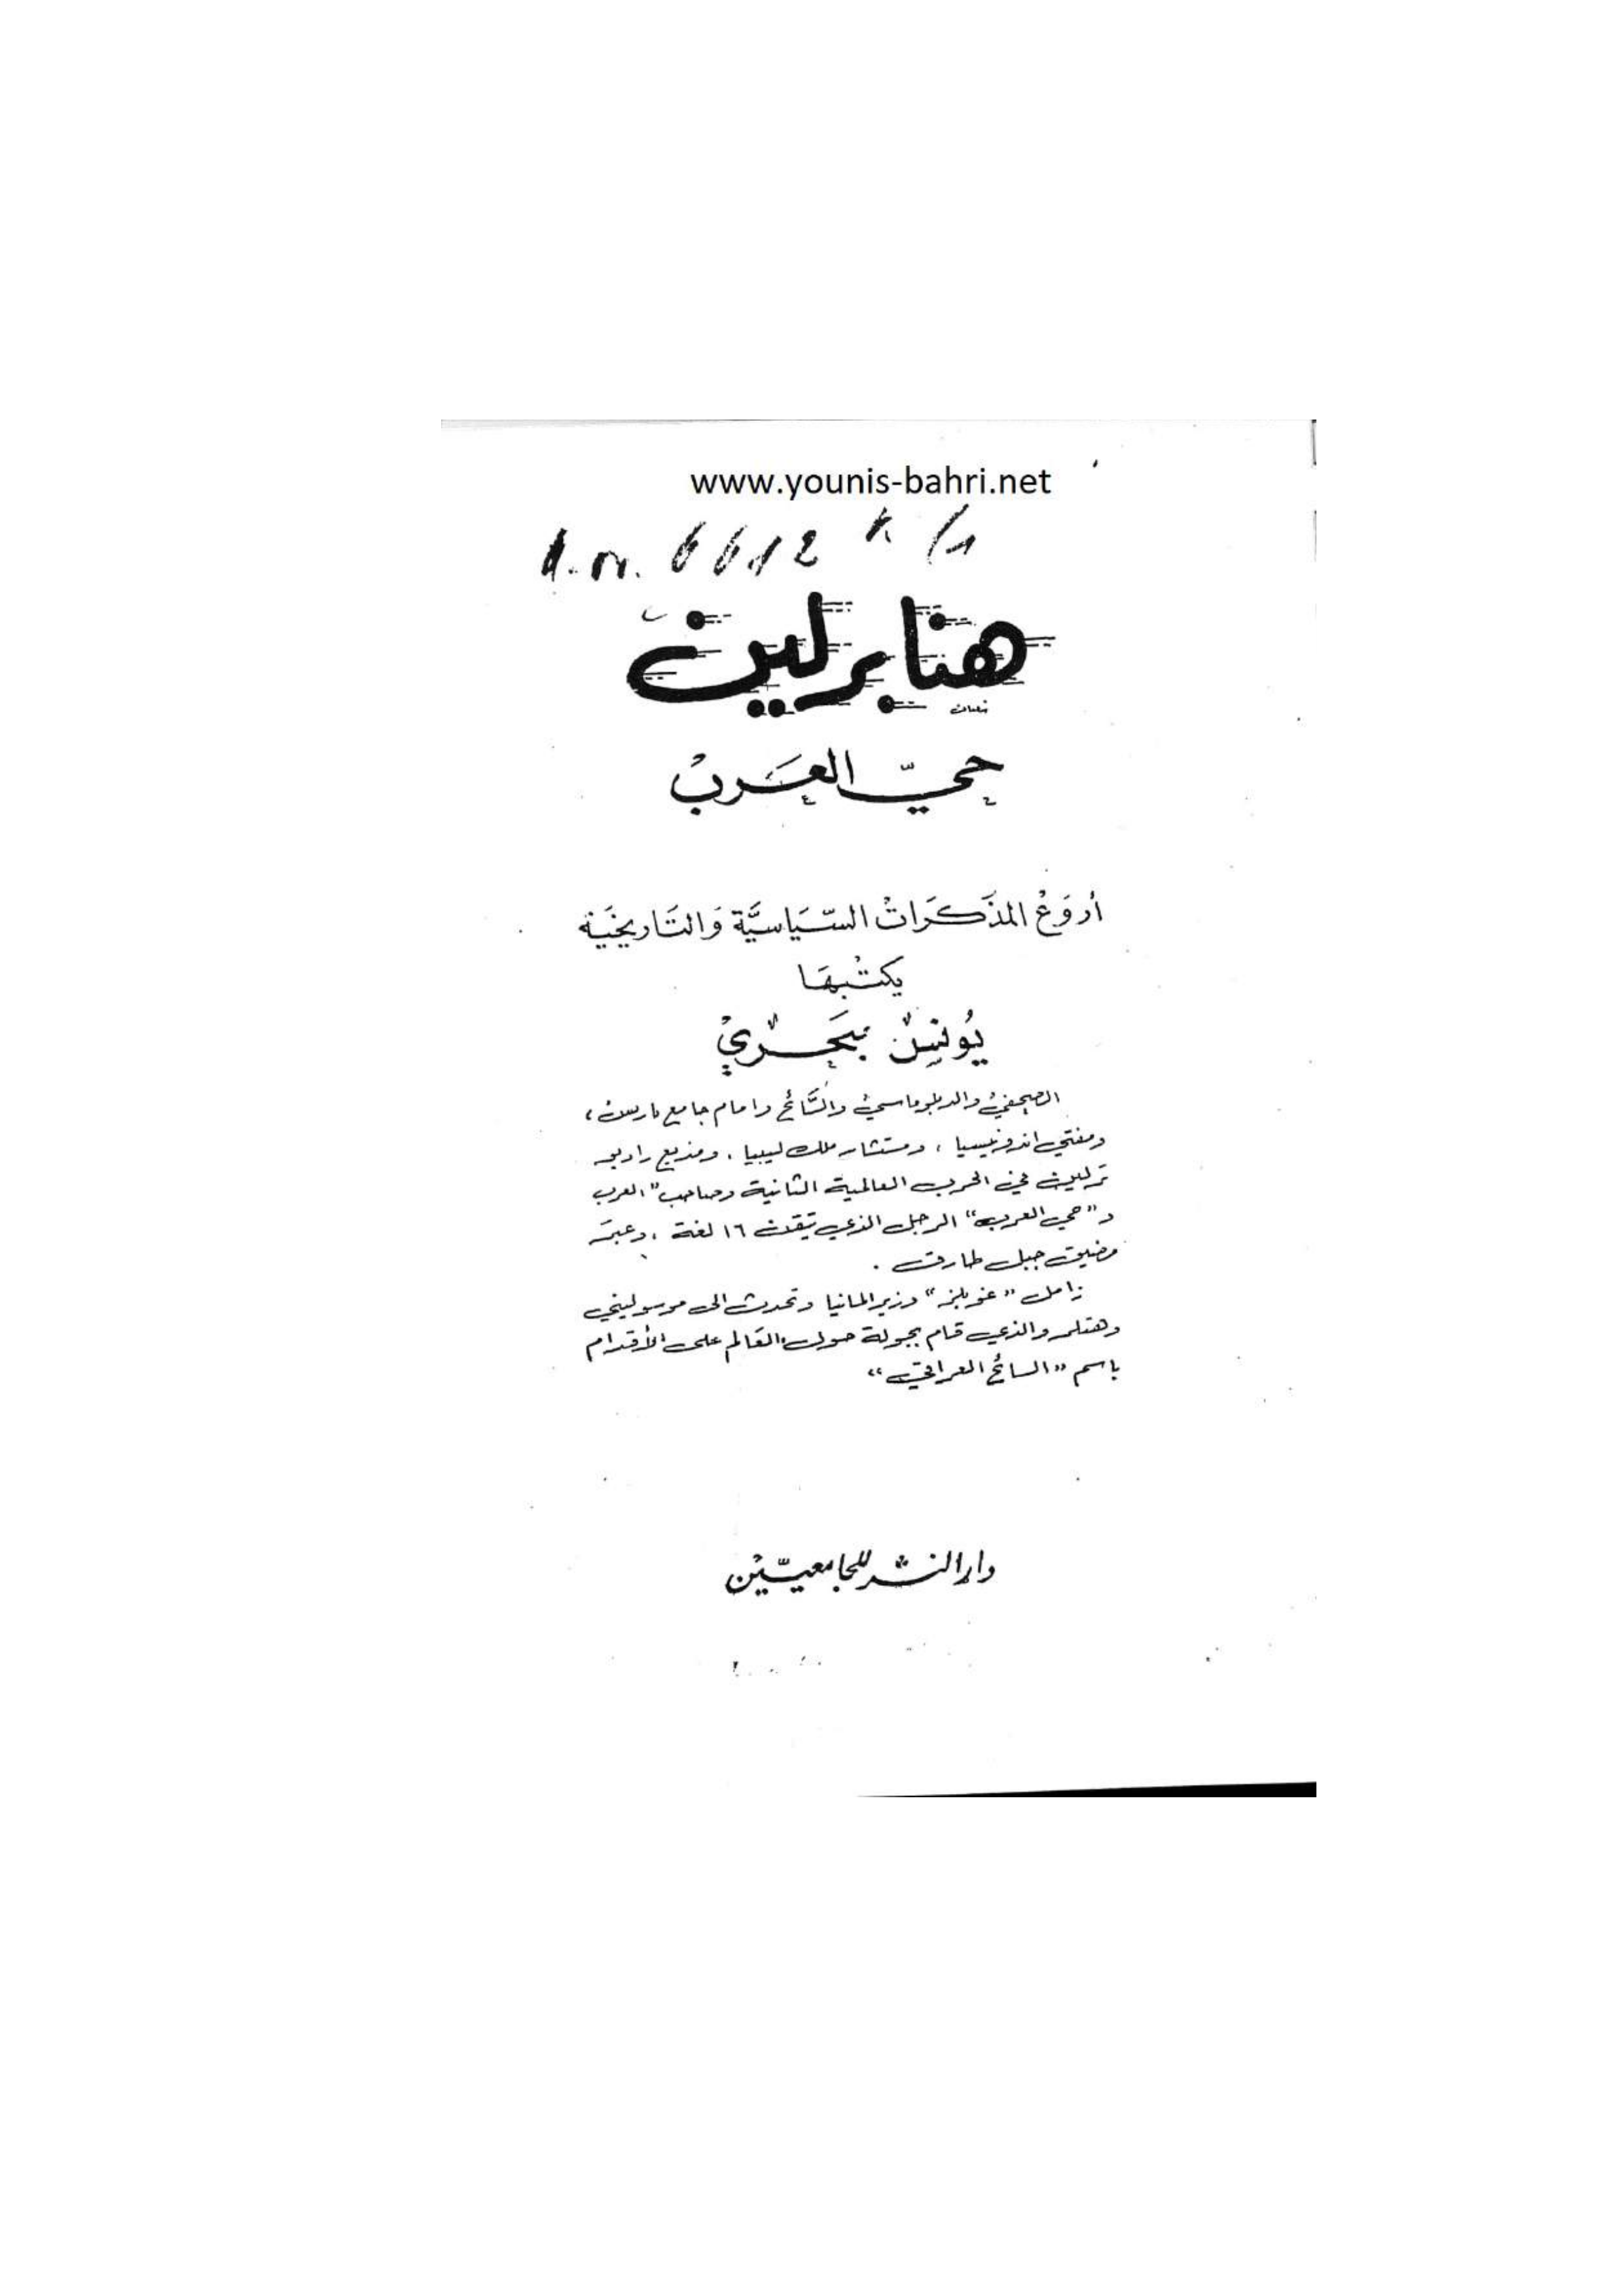 www.younis-bahri.net
6612
هنا برلين
حيّ العَربْ
أروَعْ المذَكَرَاتْ السّيَاسيَّة وَالتَاريخيَة
يَكتْبهَا
يُونسْ بَحَري
الصحفي والدبلوماسي والسَّائح وامام جامع باريس ،
ومفتي اندونيسيا ، ومستشار ملك ليبيا ، ومذيع راديو
برلين في الحرب العالمية الثانية وصاحب " العرب
و " حي العرب " الرجل الذي يتقن ١٦ لغة ، وعبر
مضيق جبل طارق .
زامل " غوبلز " وزير المانيا وتحدث الى موسوليني
وهتلر والذي قام بجولة حول العالم على الأقدام
باسم " السائح العراقي "
دار النشر للجامعيّين